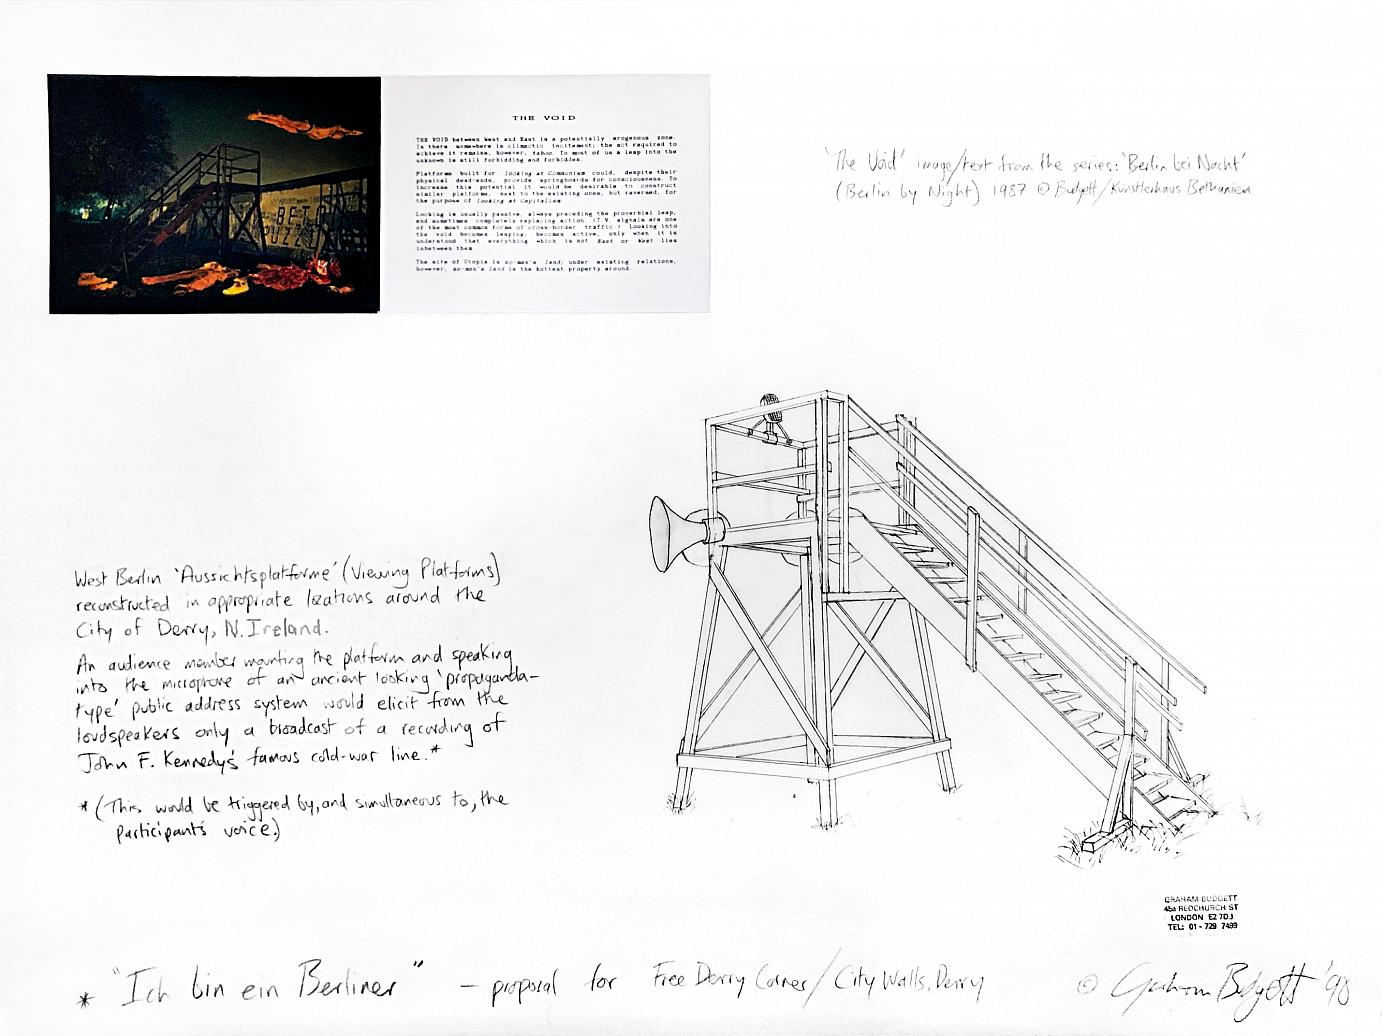 THE VOID
THE VOID between West and East is a potentially erogenous zone.
Is there somewhere is climactic incitement; the act required to
achieve it remains, however, taboo. To most of us a leap into the
unknown is still forbidding and forbidden.
Platforms built for looking at Communism could, despite their
physical dead-ends, provide springboards for consciousness. To
increase this potential it would be desirable to construct
similar platforms, next to the existing ones, but reversed, for
the purpose of looking at Capitalism.
Looking is usually passive, always preceding the proverbial leap,
and sometimes completely replacing action. (T.V. signals are one
of the most common forms of cross-border traffic.) Looking into
the void becomes leaping, becomes active, only when it is
understood that everything which is not East or West lies
inbetween them.
The site of Utopia is no-man's land; under existing relations,
however, no-man's land is the hottest property around.
'The Void' image/text from the series: 'Berlin bei Nacht'
(Berlin by Night) 1987 © Budgett/Künstlerhaus Bethanien
West Berlin 'Aussichtsplatforme' (Viewing Platforms)
reconstructed in appropriate locations around the
City of Derry, N. Ireland.
An audience member mounting the platform and speaking
into the microphone of an ancient looking 'propaganda-
type' public address system would elicit from the
loudspeakers only a broadcast of a recording of
John F. Kennedy's famous cold-war line.*
* (This would be triggered by, and simultaneous to, the
participant's voice.)
GRAHAM BUDGETT
45a REDCHURCH ST
LONDON E2 7DJ
TEL: 01-729 7499
* "Ich bin ein Berliner" – proposal for Free Derry Corner/City Walls, Derry
© Graham Budgett '90